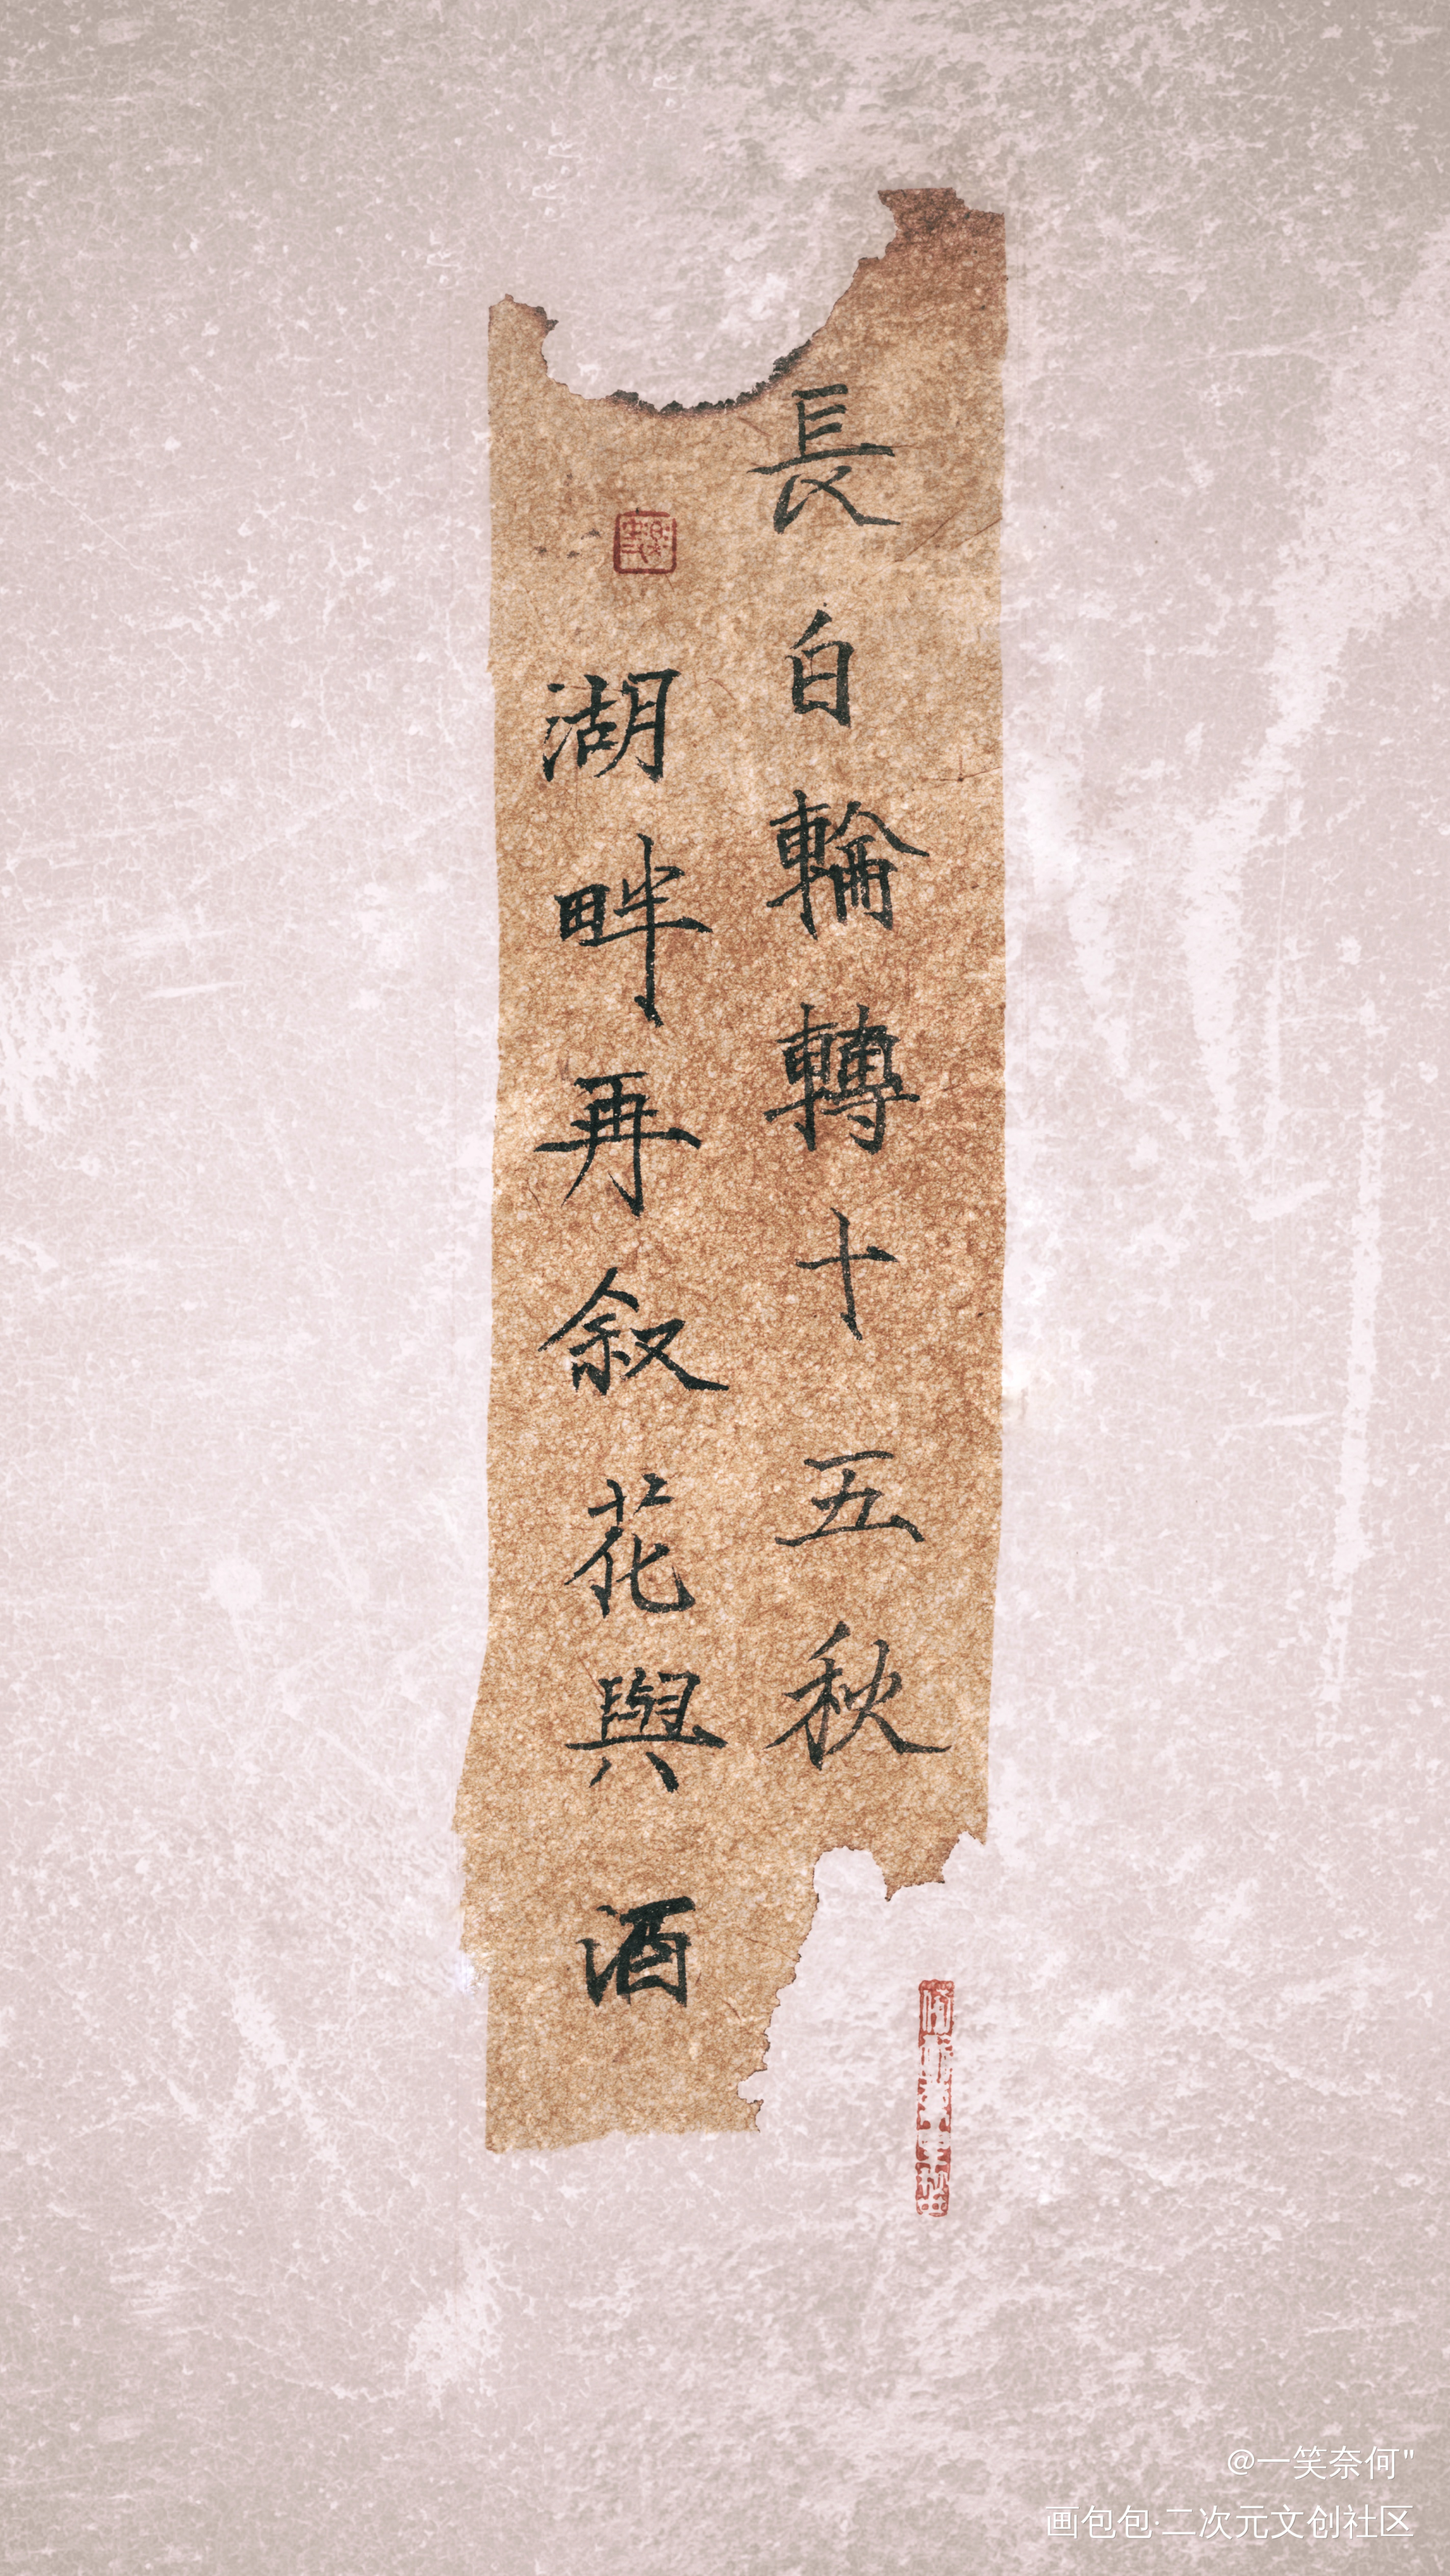 長白輪轉十五秋
湖畔再叙花與酒
@一笑奈何"
画包包·二次元文创社区